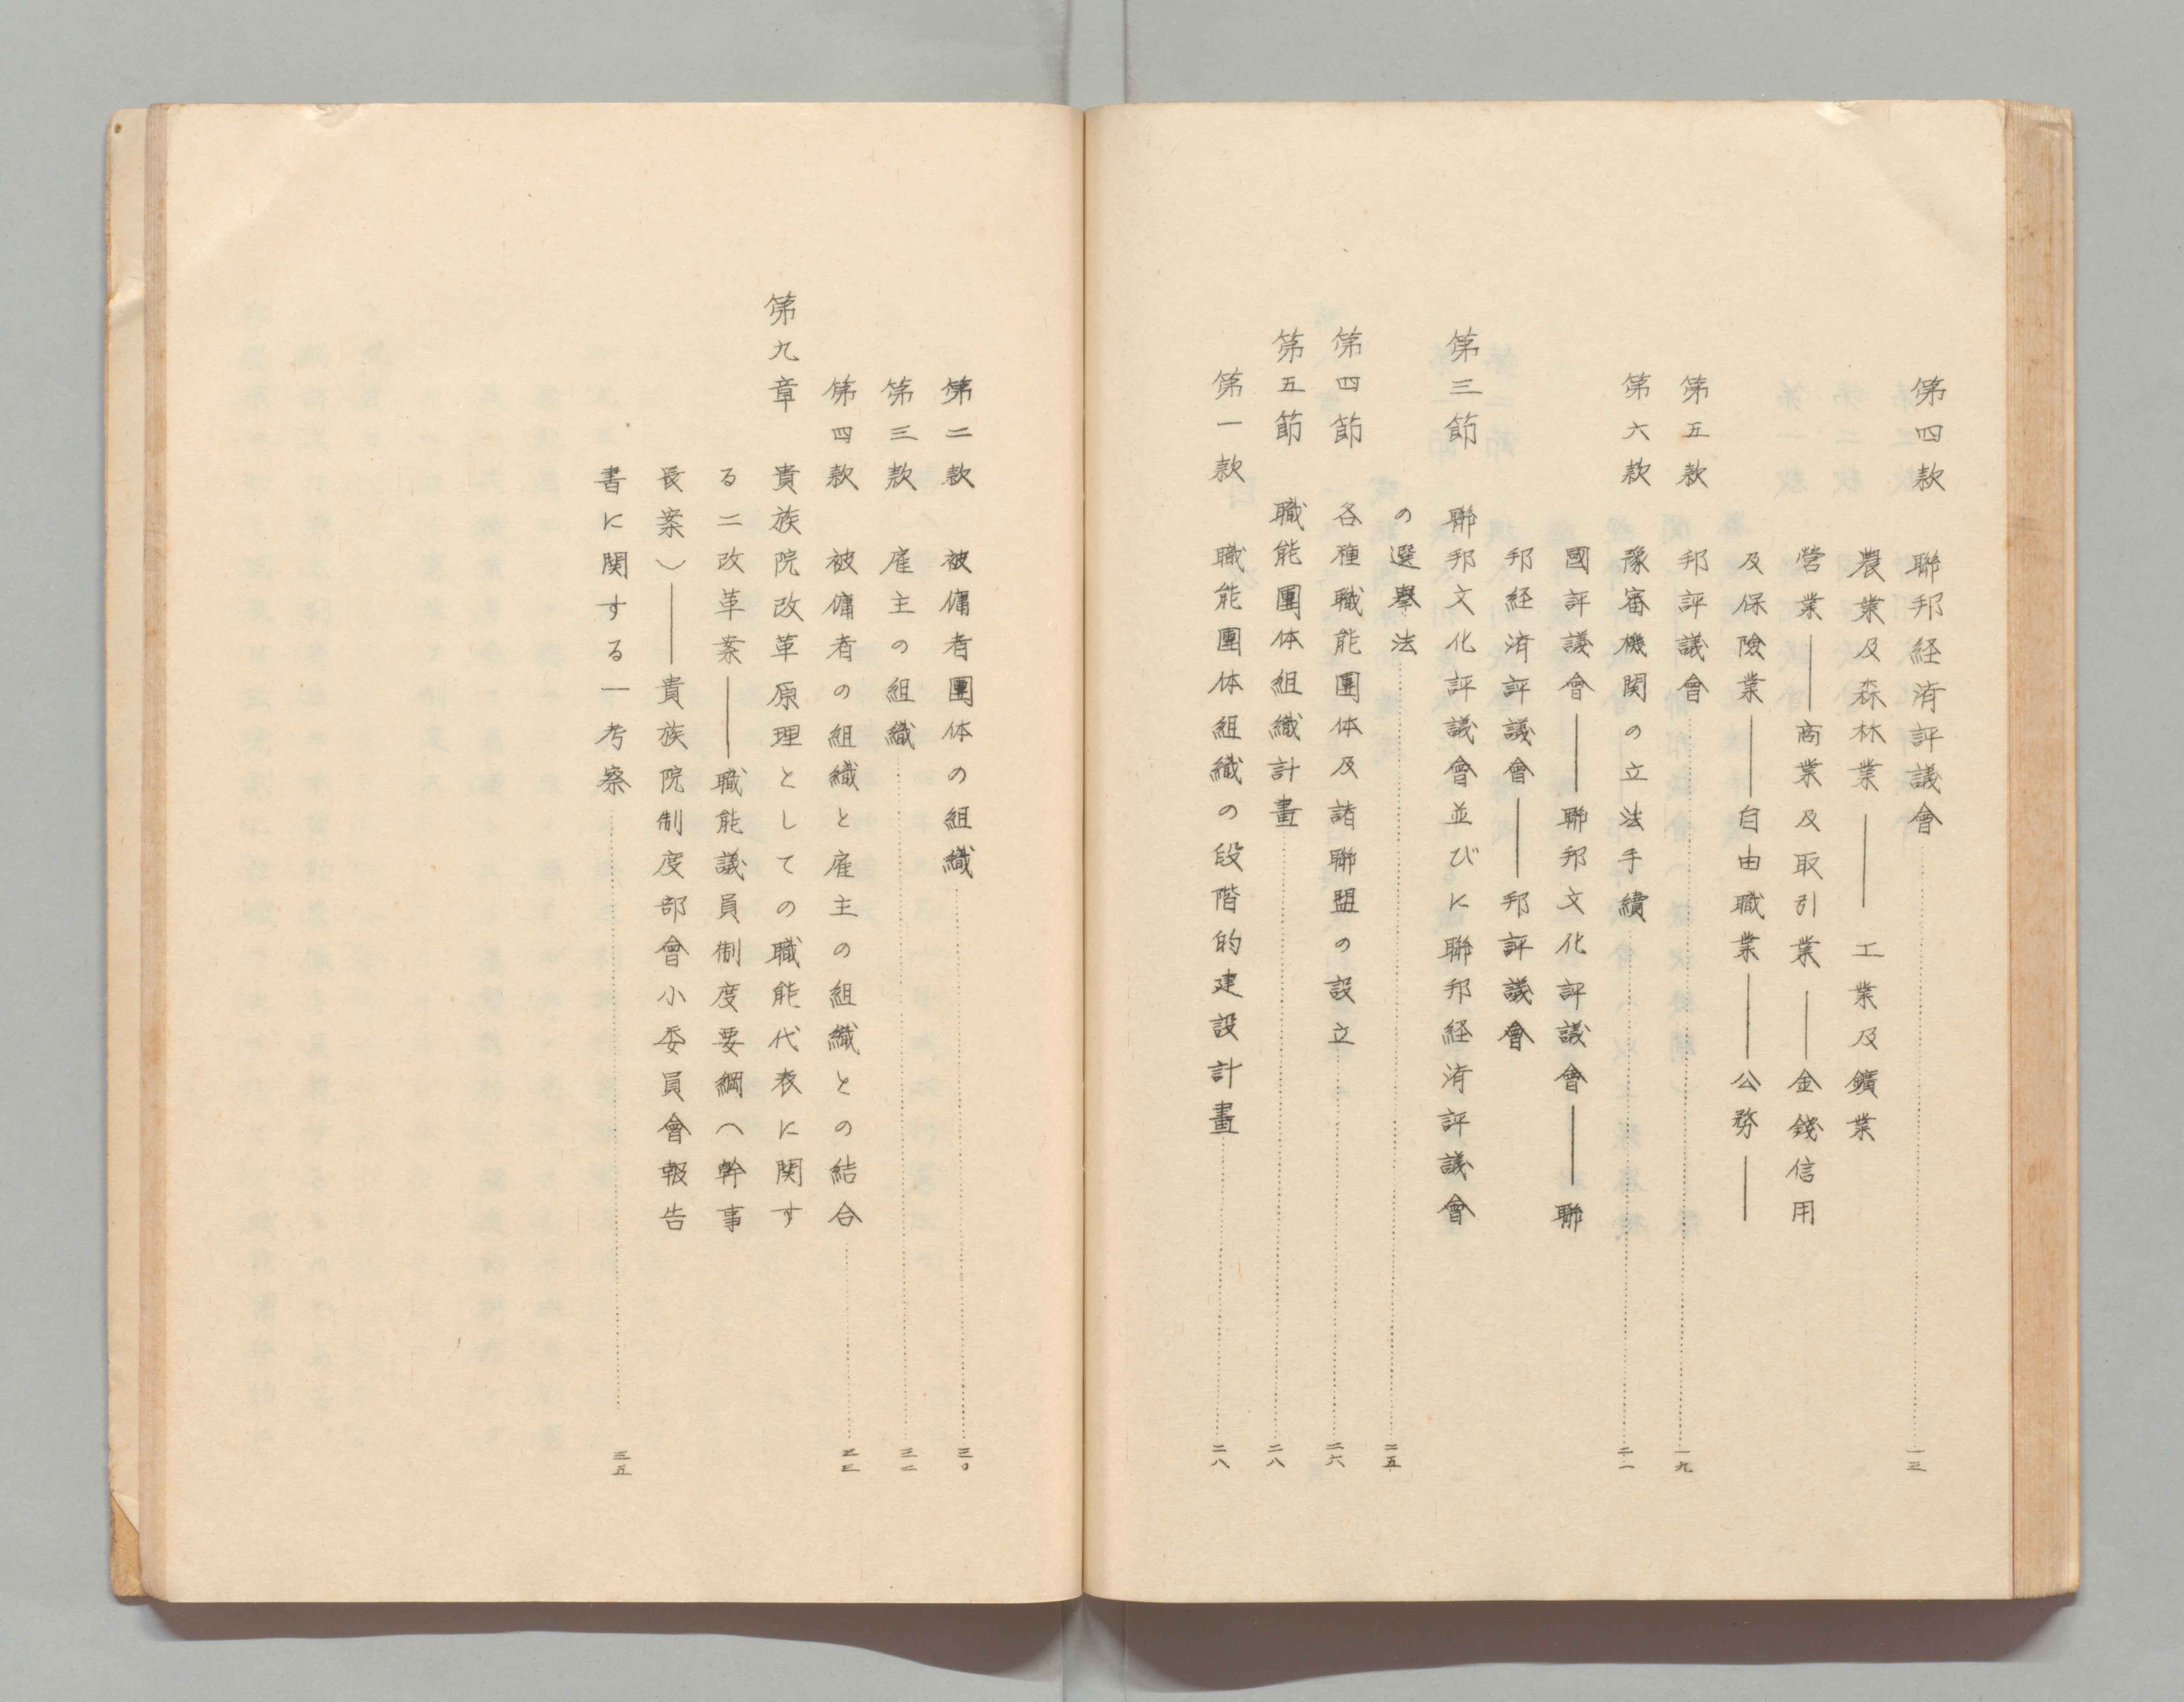 第四款　聯邦経済評議會……一三
農業及森林業――工業及鑛業
営業――商業及取引業――金錢信用
及保険業――自由職業――公務――
第五款　邦評議會……一九
第六款　豫審機関の立法手續……二一
國評議會――聯邦文化評議會――聯
邦経済評議會――邦評議會
第三節　聯邦文化評議會並びに聯邦経済評議會
の選擧法……二五
第四節　各種職能團体及諸聯盟の設立……二六
第五節　職能團体組織計畫……二八
第一款　職能團体組織の段階的建設計畫……二八
第二款　被傭者團体の組織……三〇
第三款　雇主の組織……三二
第四款　被傭者の組織と雇主の組織との結合……三三
第九章　貴族院改革原理としての職能代表に関す
る二改革案――職能議員制度要綱（幹事
長案）――貴族院制度部會小委員會報告
書に関する一考察……三五